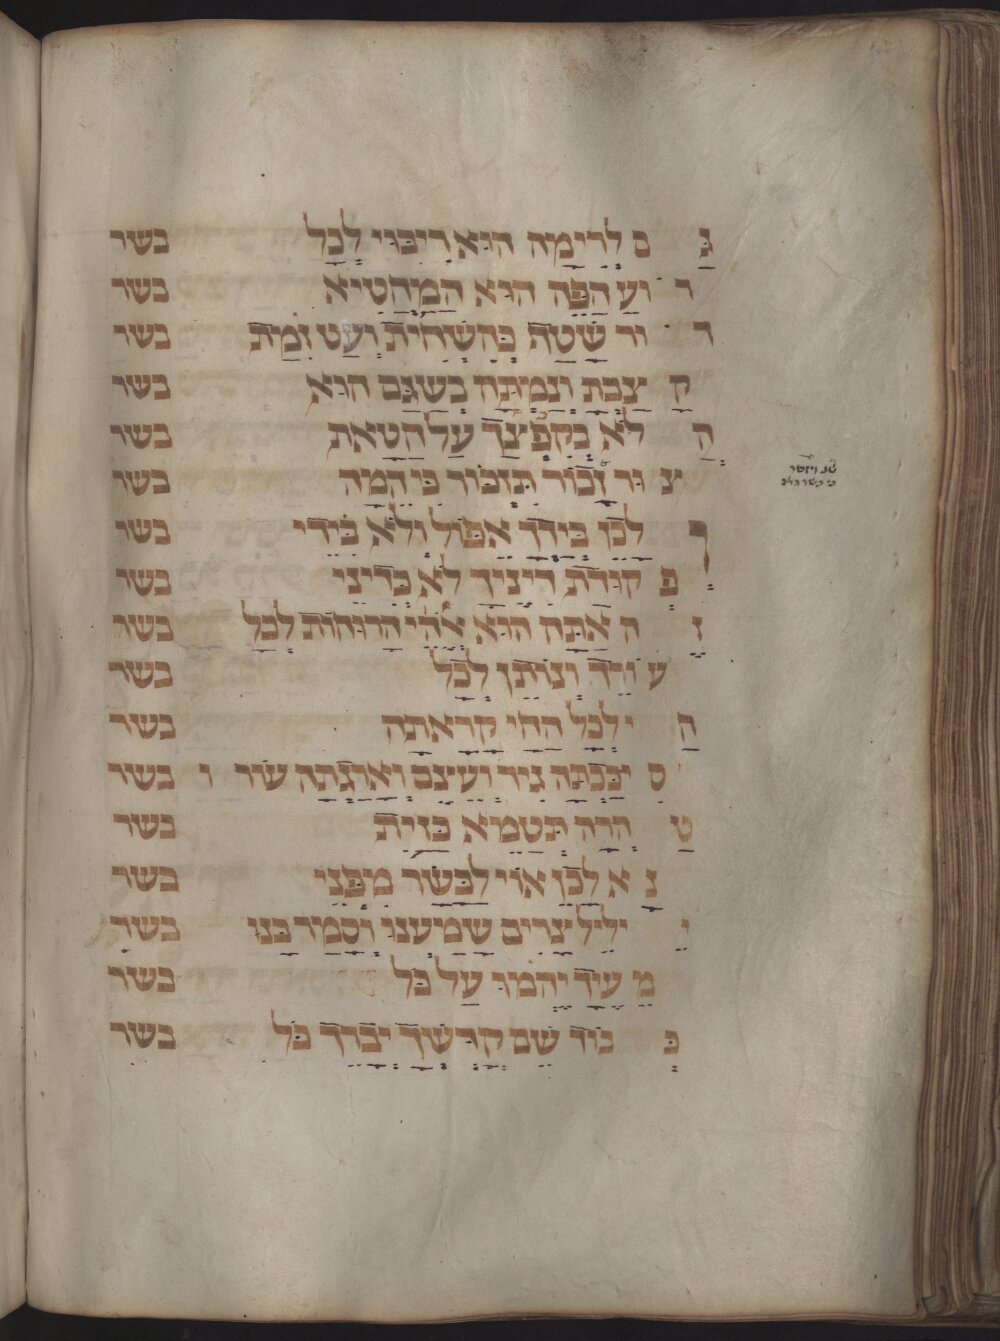 גּ ם לְרִימָה הוּא רִיבּוּי לְכָל בשר
ר וּעַ הַפֶּה הוּא הַמַּחֲטִיא בשר
ד ור שָׁטָה בְּהַשְׁחִית וְעַט זִמַּת בשר
ק צַבְתָּ וְנִמְתָּה בְּשַׁגַּם הוּא בשר
הֲ לֹא בְּקִפְצָךְ עַל חַטָּאת בשר
צ וּר זָכוֹר תִּזְכּוֹר כִּי הֵמָּה בשר
שׂנ ויזכר
כי בשר המ
ךָ לָכֵן בְּיָדְךָ אֶפּוֹל וְלֹא בִּידֵי בשר
פְּ קוּדַּת דִּינֶיךָ לֹא כְדִינֵי בשר
זֶ ה אַתָּה הוּא אֱלֹהֵי הָרוּחוֹת לְכָל בשר
ע וֹרֵךְ וְנוֹתֵן לְכָל בשר
חַ י לְכָל הַחַי קָרָאתָה בשר
סִ יכַּכְתָּה גִיד וְעֶצֶם וְאָרַגְתָּה עוֹר ו בשר
טַ הֲרָה תְּטַמֵּא כְּזַיִת בשר
נָ א לָכֵן אוֹי לְבָשָׂר מִפְּנֵי בשר
יְ יְלֵיל יְצָרִים שִׁמְעֵנוּ וְסָמַר בָּנוּ בשר
מֵ עֶיךָ יֶהֱמוּ עַל כָּל בשר
כְּ כוֹד שֵׁם קָדְשְׁךָ יְבָרֵךְ כֹּל בשר